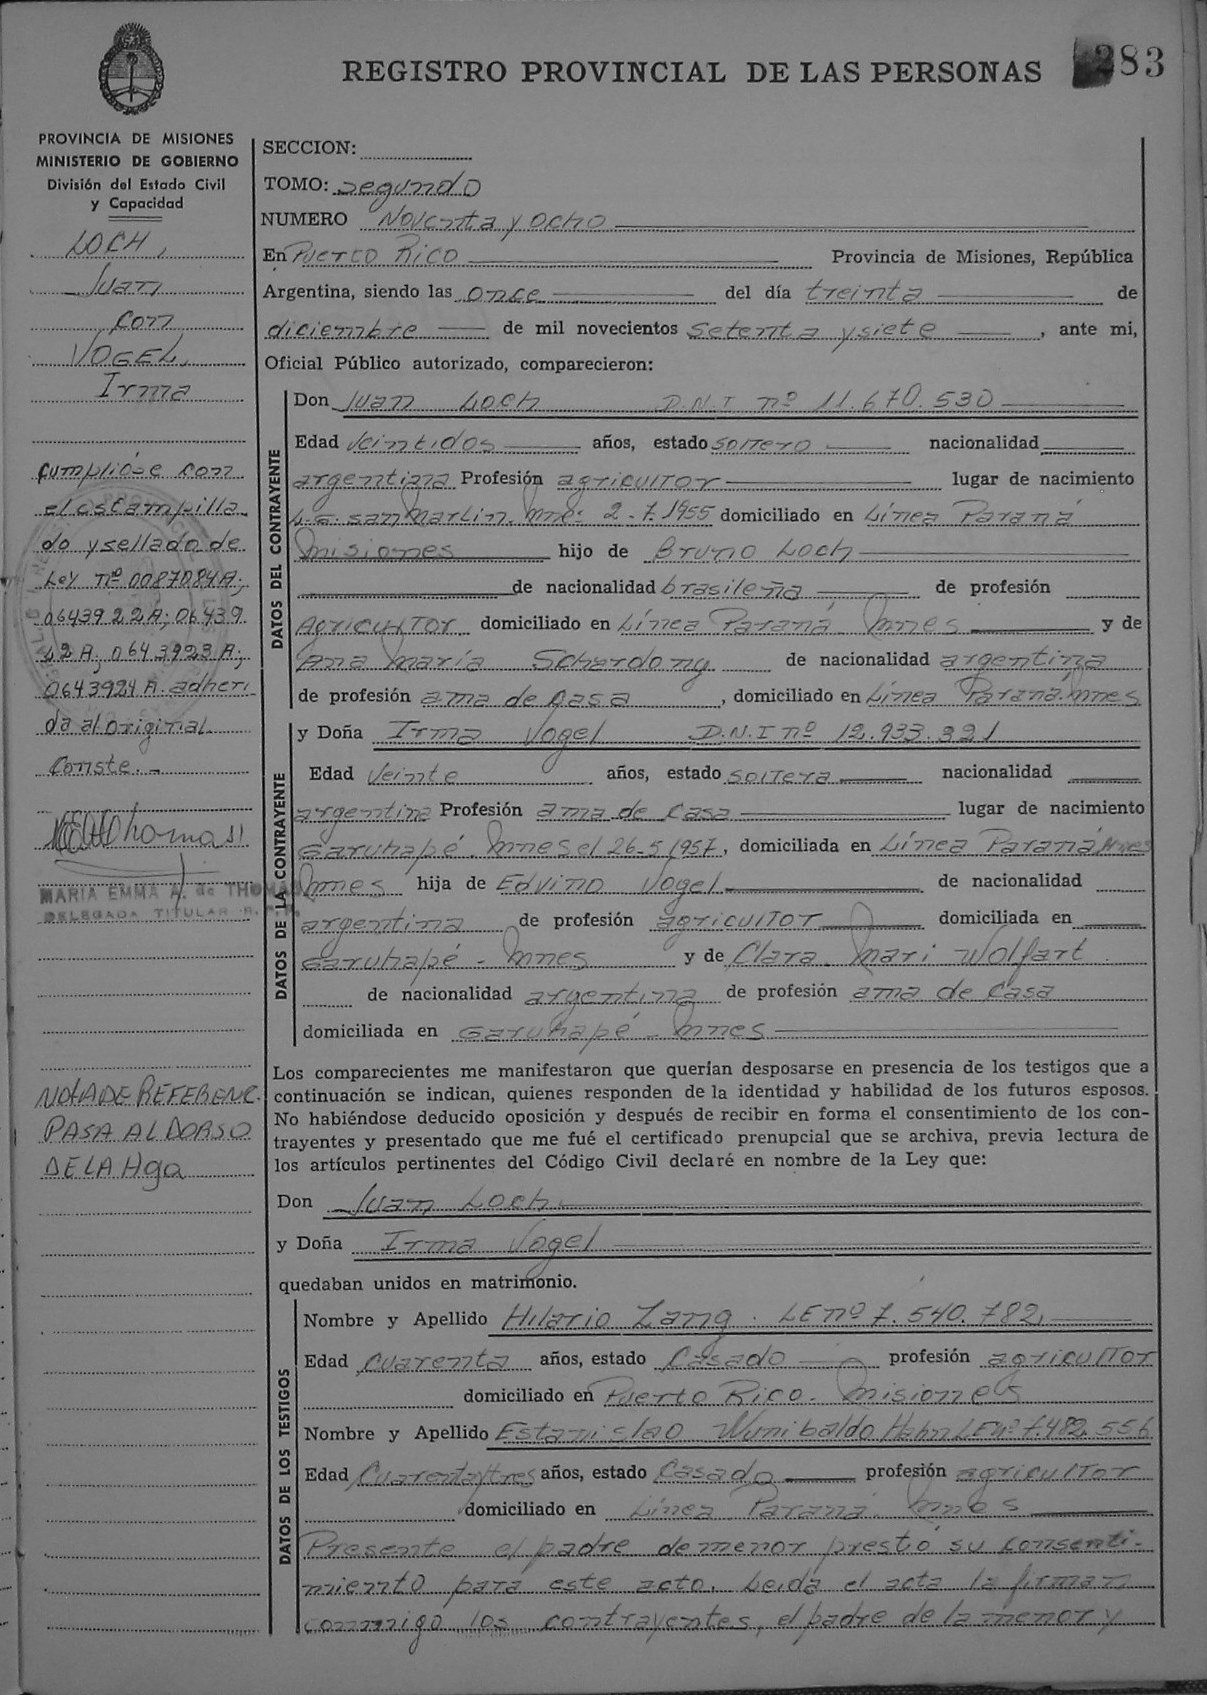 283
REGISTRO PROVINCIAL DE LAS PERSONAS
PROVINCIA DE MISIONES
MINISTERIO DE GOBIERNO
División del Estado Civil
y Capacidad
LOCH,
Juan
con
VOGEL,
Irma
Cumplióse con
el estampilla
do y sellado de
Ley nº 0087084A;
0643922A; 06439
22A; 0643923A;
0643924A. adheri
da al original
Conste.-
MARIA EMMA A. de THOMAS
DELEGADA TITULAR R.
NOTA DE REFERENC.
PASA AL DORSO
DE LA Hga
SECCION:
TOMO: segundo
NUMERO Noventa y ocho
En Puerto Rico Provincia de Misiones, República
Argentina, siendo las once del día treinta de
diciembre de mil novecientos setenta y siete, ante mi,
Oficial Público autorizado, comparecieron:
DATOS DEL CONTRAYENTE
Don Juan Loch D.N.I nº 11.670.530
Edad veintidos años, estado soltero nacionalidad
argentina Profesión agricultor lugar de nacimiento
L.G. San Martin. Mnes 2-7-1955 domiciliado en Línea Paraná
Misiones hijo de Bruno Loch
de nacionalidad brasileña de profesión
Agricultor domiciliado en Línea Paraná Mnes y de
Ana María Scherdong de nacionalidad argentina
de profesión ama de casa, domiciliado en Línea Paraná. Mnes
DATOS DE LA CONTRAYENTE
y Doña Irma Vogel D.N.I nº 12.933.321
Edad veinte años, estado soltera nacionalidad
argentina Profesión ama de casa lugar de nacimiento
Garuhapé. Mnes el 26-5-1957, domiciliada en Línea Paraná Mnes
Mnes hija de Edvino Vogel de nacionalidad
argentina de profesión agricultor domiciliada en
Garuhapé - Mnes y de Clara Mari Wolfart
de nacionalidad argentina de profesión ama de casa
domiciliada en Garuhapé - Mnes
Los comparecientes me manifestaron que querían desposarse en presencia de los testigos que a
continuación se indican, quienes responden de la identidad y habilidad de los futuros esposos.
No habiéndose deducido oposición y después de recibir en forma el consentimiento de los con-
trayentes y presentado que me fué el certificado prenupcial que se archiva, previa lectura de
los artículos pertinentes del Código Civil declaré en nombre de la Ley que:
Don Juan Loch
y Doña Irma Vogel
quedaban unidos en matrimonio.
DATOS DE LOS TESTIGOS
Nombre y Apellido Hilario Zang. LE nº 7.540.782,
Edad cuarenta años, estado casado profesión agricultor
domiciliado en Puerto Rico. Misiones
Nombre y Apellido Estanislao Wunibaldo Hahn LE nº 7.482.556
Edad Cuarenta y tres años, estado Casado profesión agricultor
domiciliado en Línea Paraná. Mnes
Presente el padre de menor prestó su consenti-
miento para este acto. Leida el acta la firman
conmigo los contrayentes, el padre de la menor y